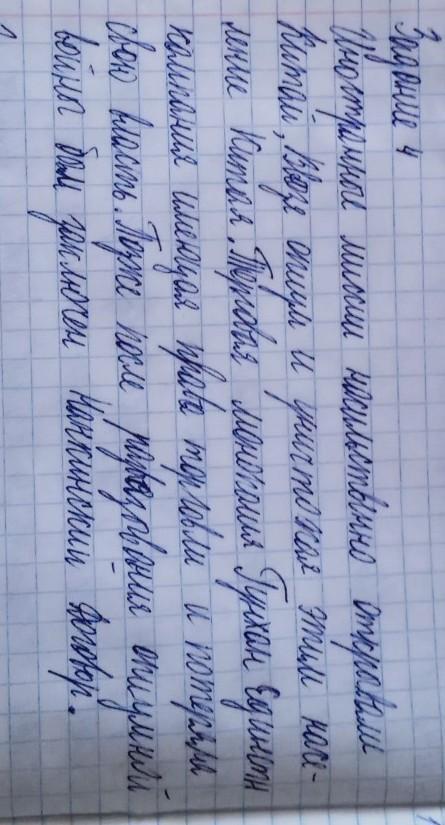 Задание 4
Иностранные миссии насильственно открывали
Китай, ввозя опиум и уничтожая этим насе-
ление Китая. Торговая монополия Гунхан Единствн
компания имеющая право торговли и потеряла
свою власть. Позже после развязывания опиумной
войны был заключен Нанкинский договор.